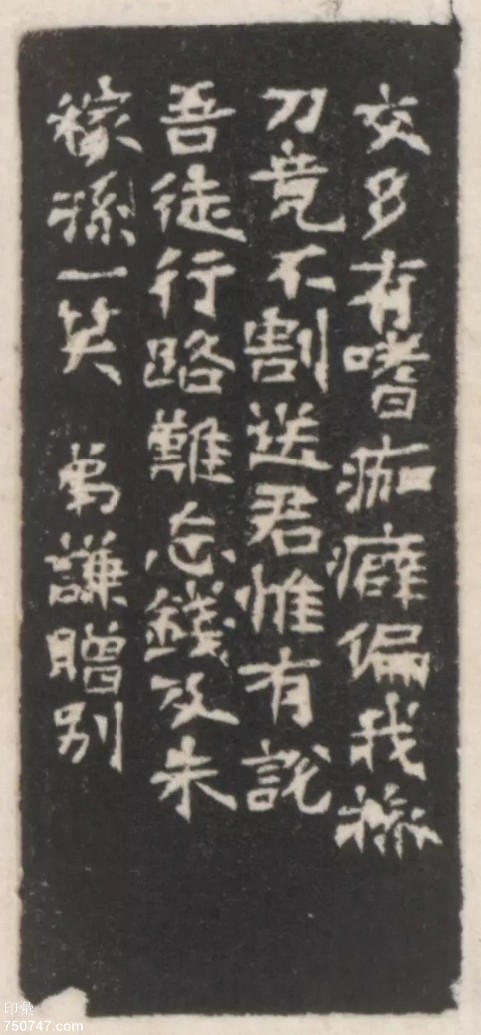 交多有嗜痂癖偏我操
刀竟不割送君惟有說
吾徒行路難忘錢及朱
稼孫一笑 為謙贈別
印彙
750747.com